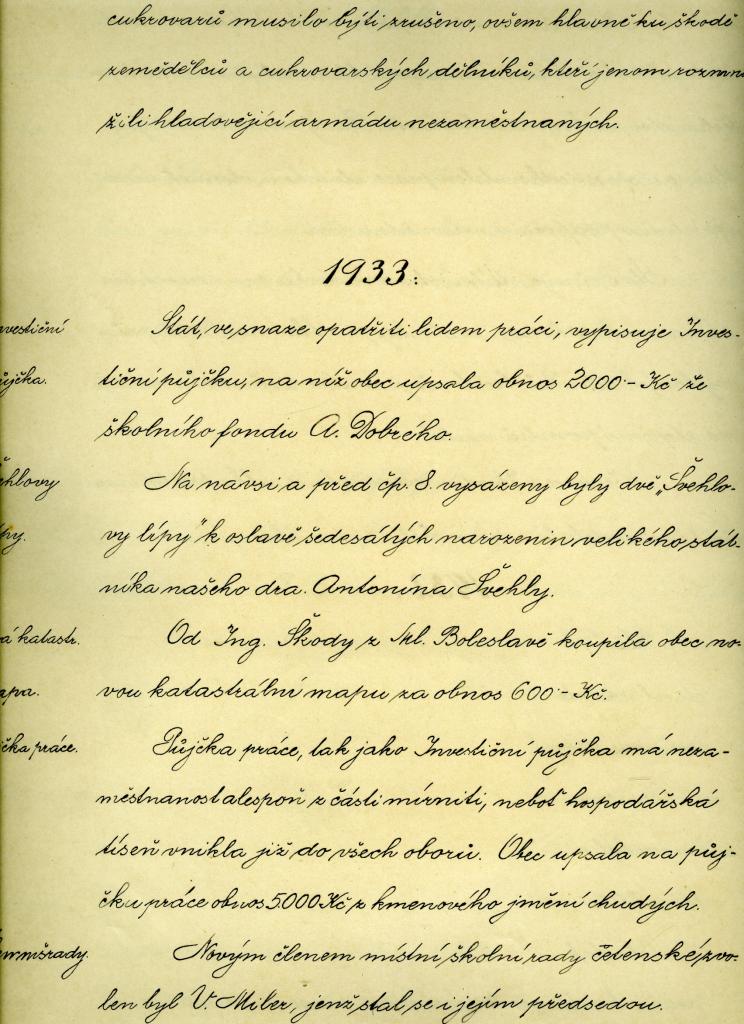 cukrovarů musilo býti zrušeno, ovšem hlavně ku škodě
zemědělců a cukrovarských dělníků, kteří jenom rozmno
žili hladovějící armádu nezaměstnaných.
1933:
nvestiční
Stát, ve snaze opatřiti lidem práci, vypisuje Inves-
ůjčka.
tiční půjčku, na níž obec upsala obnos 2000·- Kč ze
školního fondu A. Dobrého.
ehlovy
Na návsi a před čp. 8. vysázeny byly dvě „Švehlo-
py.
vy lípy" k oslavě šedesátých narozenin velikého stát-
níka našeho dra. Antonína Švehly.
á katastr.
Od Ing. Škody z Ml. Boleslavě koupila obec no-
apa.
vou katastrální mapu za obnos 600·- Kč.
čka práce.
Půjčka práce, tak jako Investiční půjčka má neza-
městnanost alespoň z části mírniti, neboť hospodářská
tíseň vnikla již do všech oborů. Obec upsala na půj-
čku práce obnos 5000 Kč z kmenového jmění chudých.
Novým členem místní školní rady četenské zvo-
len byl V. Miler, jenž stal se i jejím předsedou.